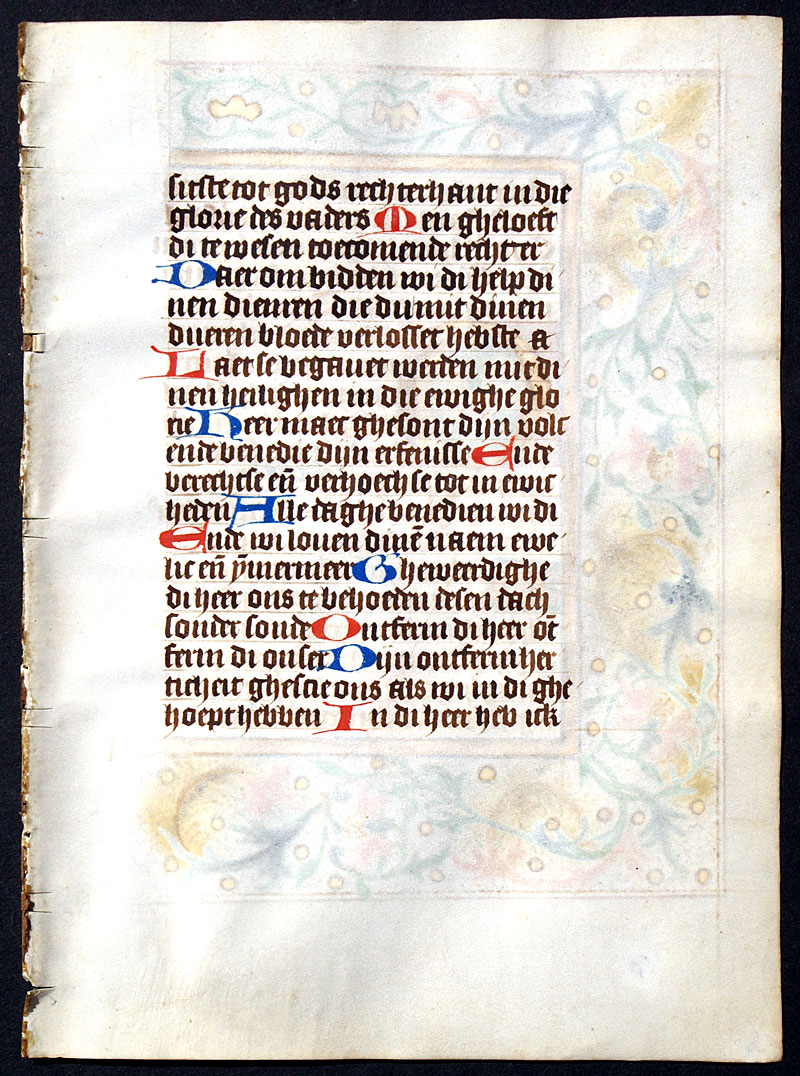 sitste tot gods rechterhant in die
glorie des vaders Men gheloeft
di te wesen toecomende rechter
Daer om bidden wi di help di
nen dienren die du mit dinen
dueren bloede verlosset hebste a
Laet se begauet werden mit di
nen heilighen in die ewighe glo
rie Heer maet ghesont dijn volc
ende benedie dijn erfenisse Ende
berechtse en̄ verhoech se tot in ewic
heden Alle daghe benedien wi di
Ende wi louen dinē naem ewe
lic en̄ ȳmermeer Gheweerdighe
di heer ons te behoeden desen dach
sonder sonde Ontferm di heer ot̄
ferm di onser Dijn ontfermher
ticheit ghescie ons als wi in di ghe
hoept hebben In di heer heb ick